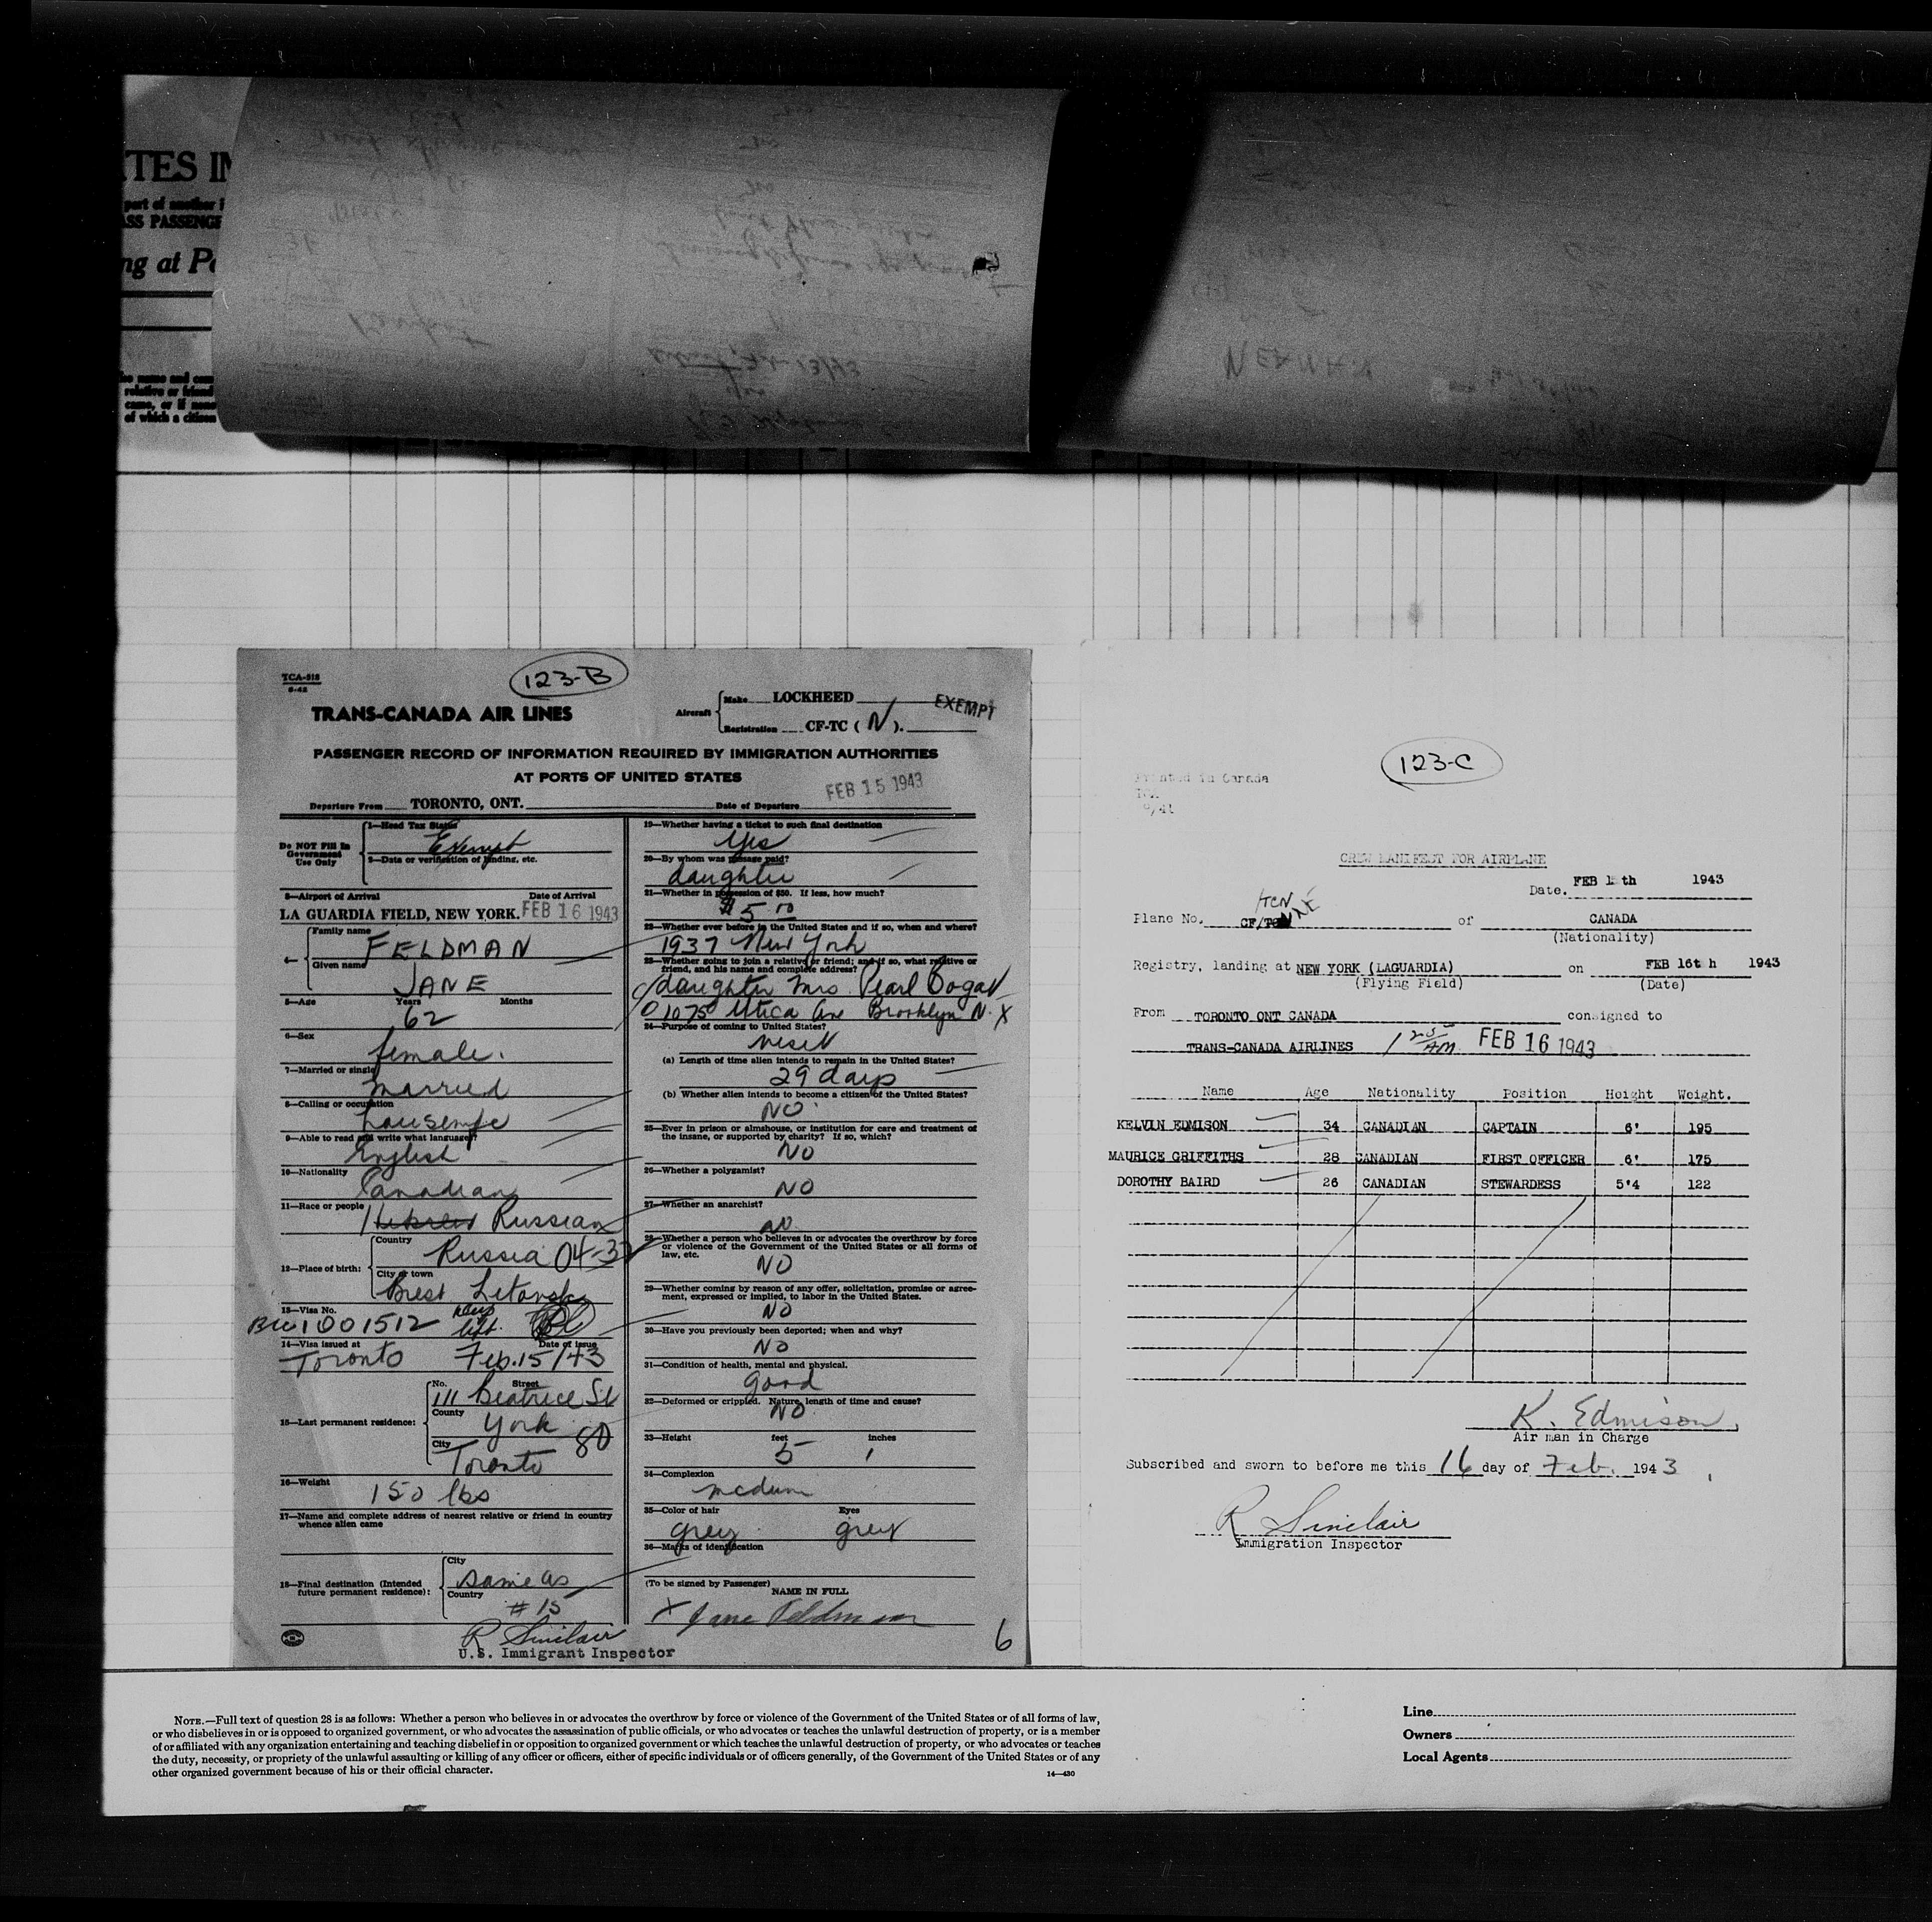 TES IN
part of another
ASS PASSENGE
ng at Po
of which a citizen
TCA-518
123-B
TRANS-CANADA AIR LINES
Aircraft
Make LOCKHEED
Registration CF-TC (N).
EXEMPT
PASSENGER RECORD OF INFORMATION REQUIRED BY IMMIGRATION AUTHORITIES
AT PORTS OF UNITED STATES
FEB 15 1943
Departure From TORONTO, ONT. Date of Departure
DO NOT Fill In Government Use Only
1—Head Tax Status
Exempt
2—Data or verification of landing, etc.
3—Airport of Arrival Date of Arrival
LA GUARDIA FIELD, NEW YORK. FEB 16 1943
4— Family name
FELDMAN
Given name
JANE
5—Age Years Months
62
6—Sex
female.
7—Married or single
married
8—Calling or occupation
housewife
9—Able to read and write what language?
English
10—Nationality
Canadian
11—Race or people
Hebrew Russian
12—Place of birth:
Country
Russia 04-32
City or town
Brest Litovsk
13—Visa No.
1001512
14—Visa issued at Date of issue
Toronto Feb. 15/43
15—Last permanent residence:
No. Street
111 Beatrice St
County
York
80
City
Toronto
16—Weight
150 lbs
17—Name and complete address of nearest relative or friend in country
whence alien came
18—Final destination (Intended
future permanent residence):
City
same as
Country
# 15
R Sinclair
U.S. Immigrant Inspector
19—Whether having a ticket to such final destination
Yes
20—By whom was passage paid?
daughter
21—Whether in possession of $50. If less, how much?
$5 00
22—Whether ever before in the United States and if so, when and where?
1937 New York
23—Whether going to join a relative or friend; and if so, what relative or
friend, and his name and complete address?
daughter Mrs. Pearl
1075 Utica Ave Brooklyn N.Y
24—Purpose of coming to United States?
visit
(a) Length of time alien intends to remain in the United States?
29 days
(b) Whether alien intends to become a citizen of the United States?
NO
25—Ever in prison or almshouse, or institution for care and treatment of
the insane, or supported by charity? If so, which?
NO
26—Whether a polygamist?
NO
27—Whether an anarchist?
no
28—Whether a person who believes in or advocates the overthrow by force
or violence of the Government of the United States or all forms of
law, etc.
NO
29—Whether coming by reason of any offer, solicitation, promise or agree-
ment, expressed or implied, to labor in the United States.
NO
30—Have you previously been deported; when and why?
NO
31—Condition of health, mental and physical.
good
32—Deformed or crippled. Nature, length of time and cause?
NO
33—Height feet inches
5 1
34—Complexion
medium
35—Color of hair Eyes
grey grey
36—Marks of identification
(To be signed by Passenger)
NAME IN FULL
x Jane Feldman
6
123-C
Printed in Canada
CREW MANIFEST FOR AIRPLANE
Date. FEB 15th 1943
TCN
Plane No. CF/TC of CANADA
(Nationality)
Registry, landing at NEW YORK (LAGUARDIA) on FEB 16th 1943
(Flying Field) (Date)
From TORONTO ONT CANADA consigned to
TRANS-CANADA AIRLINES 1 25 AM FEB 16 1943
Name Age Nationality Position Height Weight.
KELVIN EDMISON 34 CANADIAN CAPTAIN 6' 195
MAURICE GRIFFITHS 28 CANADIAN FIRST OFFICER 6' 175
DOROTHY BAIRD 26 CANADIAN STEWARDESS 5'4 122
K. Edmison
Air man in Charge
Subscribed and sworn to before me this 16 day of Feb. 1943
R Sinclair
Immigration Inspector
NOTE.—Full text of question 28 is as follows: Whether a person who believes in or advocates the overthrow by force or violence of the Government of the United States or of all forms of law,
or who disbelieves in or is opposed to organized government, or who advocates the assassination of public officials, or who advocates or teaches the unlawful destruction of property, or is a member
of or affiliated with any organization entertaining and teaching disbelief in or opposition to organized government or which teaches the unlawful destruction of property, or who advocates or teaches
the duty, necessity, or propriety of the unlawful assaulting or killing of any officer or officers, either of specific individuals or of officers generally, of the Government of the United States or of any
other organized government because of his or their official character.
14—430
Line
Owners
Local Agents